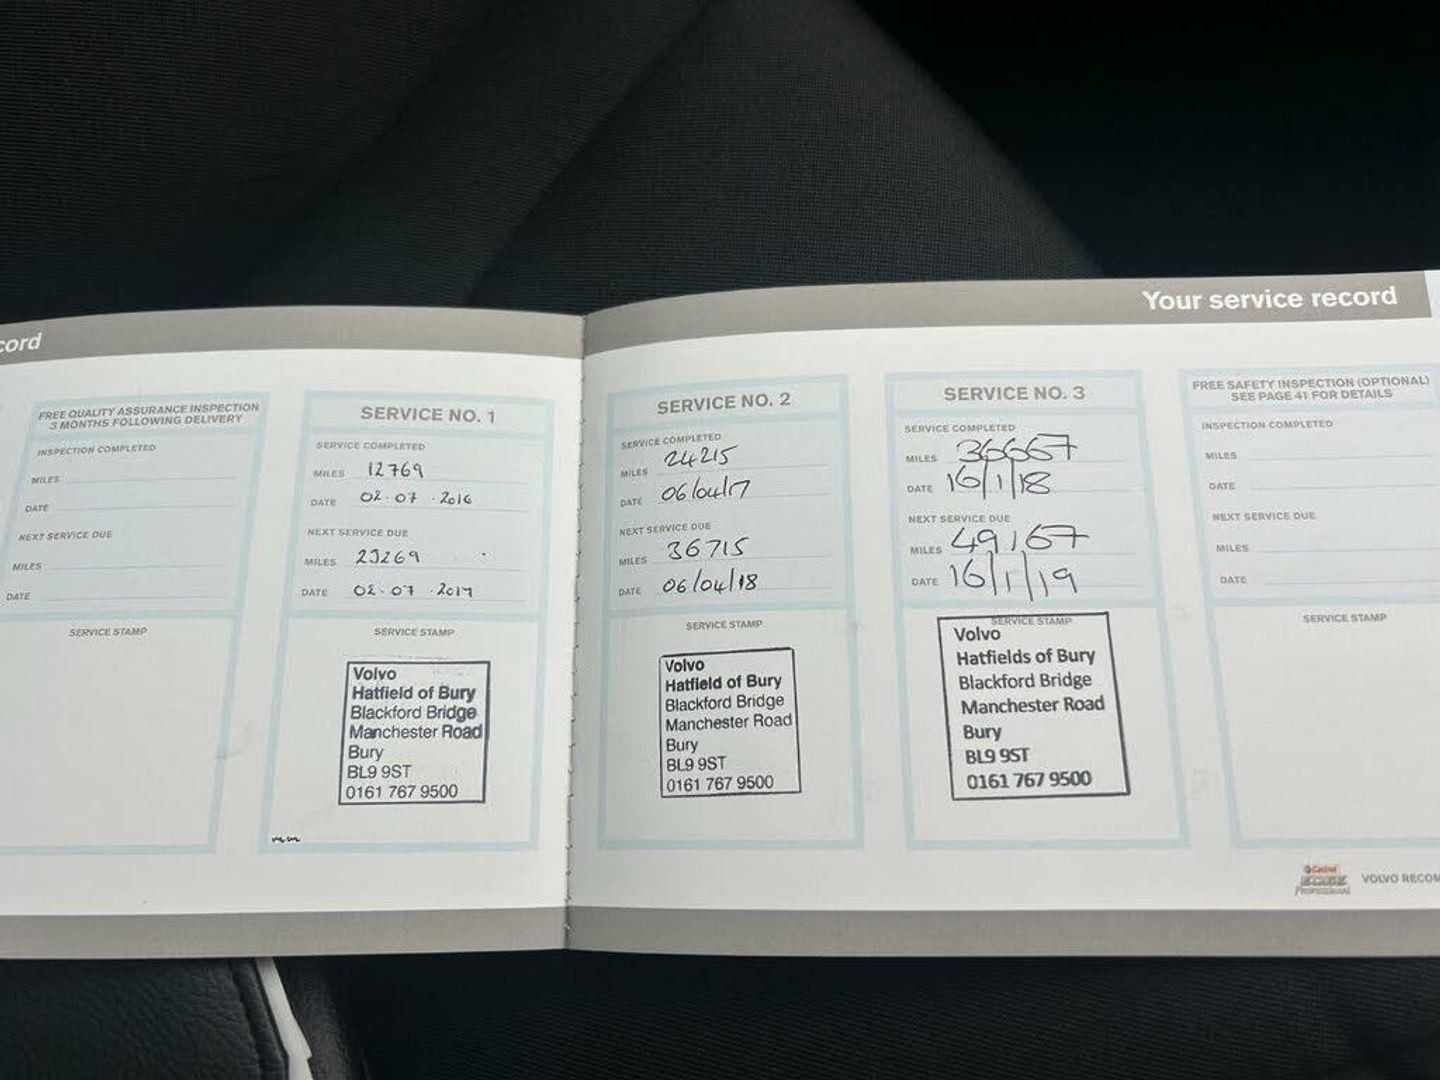 cord
FREE QUALITY ASSURANCE INSPECTION
3 MONTHS FOLLOWING DELIVERY
INSPECTION COMPLETED
MILES
DATE
NEXT SERVICE DUE
MILES
DATE
SERVICE STAMP
SERVICE NO. 1
SERVICE COMPLETED
MILES 12769
DATE 02.07.2016
NEXT SERVICE DUE
MILES 25269
DATE 02.07.2017
SERVICE STAMP
Volvo
Hatfield of Bury
Blackford Bridge
Manchester Road
Bury
BL9 9ST
0161 767 9500
Your service record
SERVICE NO. 2
SERVICE COMPLETED
MILES 24215
DATE 06/04/17
NEXT SERVICE DUE
MILES 36715
DATE 06/04/18
SERVICE STAMP
Volvo
Hatfield of Bury
Blackford Bridge
Manchester Road
Bury
BL9 9ST
0161 767 9500
SERVICE NO. 3
SERVICE COMPLETED
MILES 36667
DATE 16/1/18
NEXT SERVICE DUE
MILES 49167
DATE 16/1/19
SERVICE STAMP
Volvo
Hatfields of Bury
Blackford Bridge
Manchester Road
Bury
BL9 9ST
0161 767 9500
FREE SAFETY INSPECTION (OPTIONAL)
SEE PAGE 41 FOR DETAILS
INSPECTION COMPLETED
MILES
DATE
NEXT SERVICE DUE
MILES
DATE
SERVICE STAMP
Castrol
EDGE
PROFESSIONAL
VOLVO RECOM